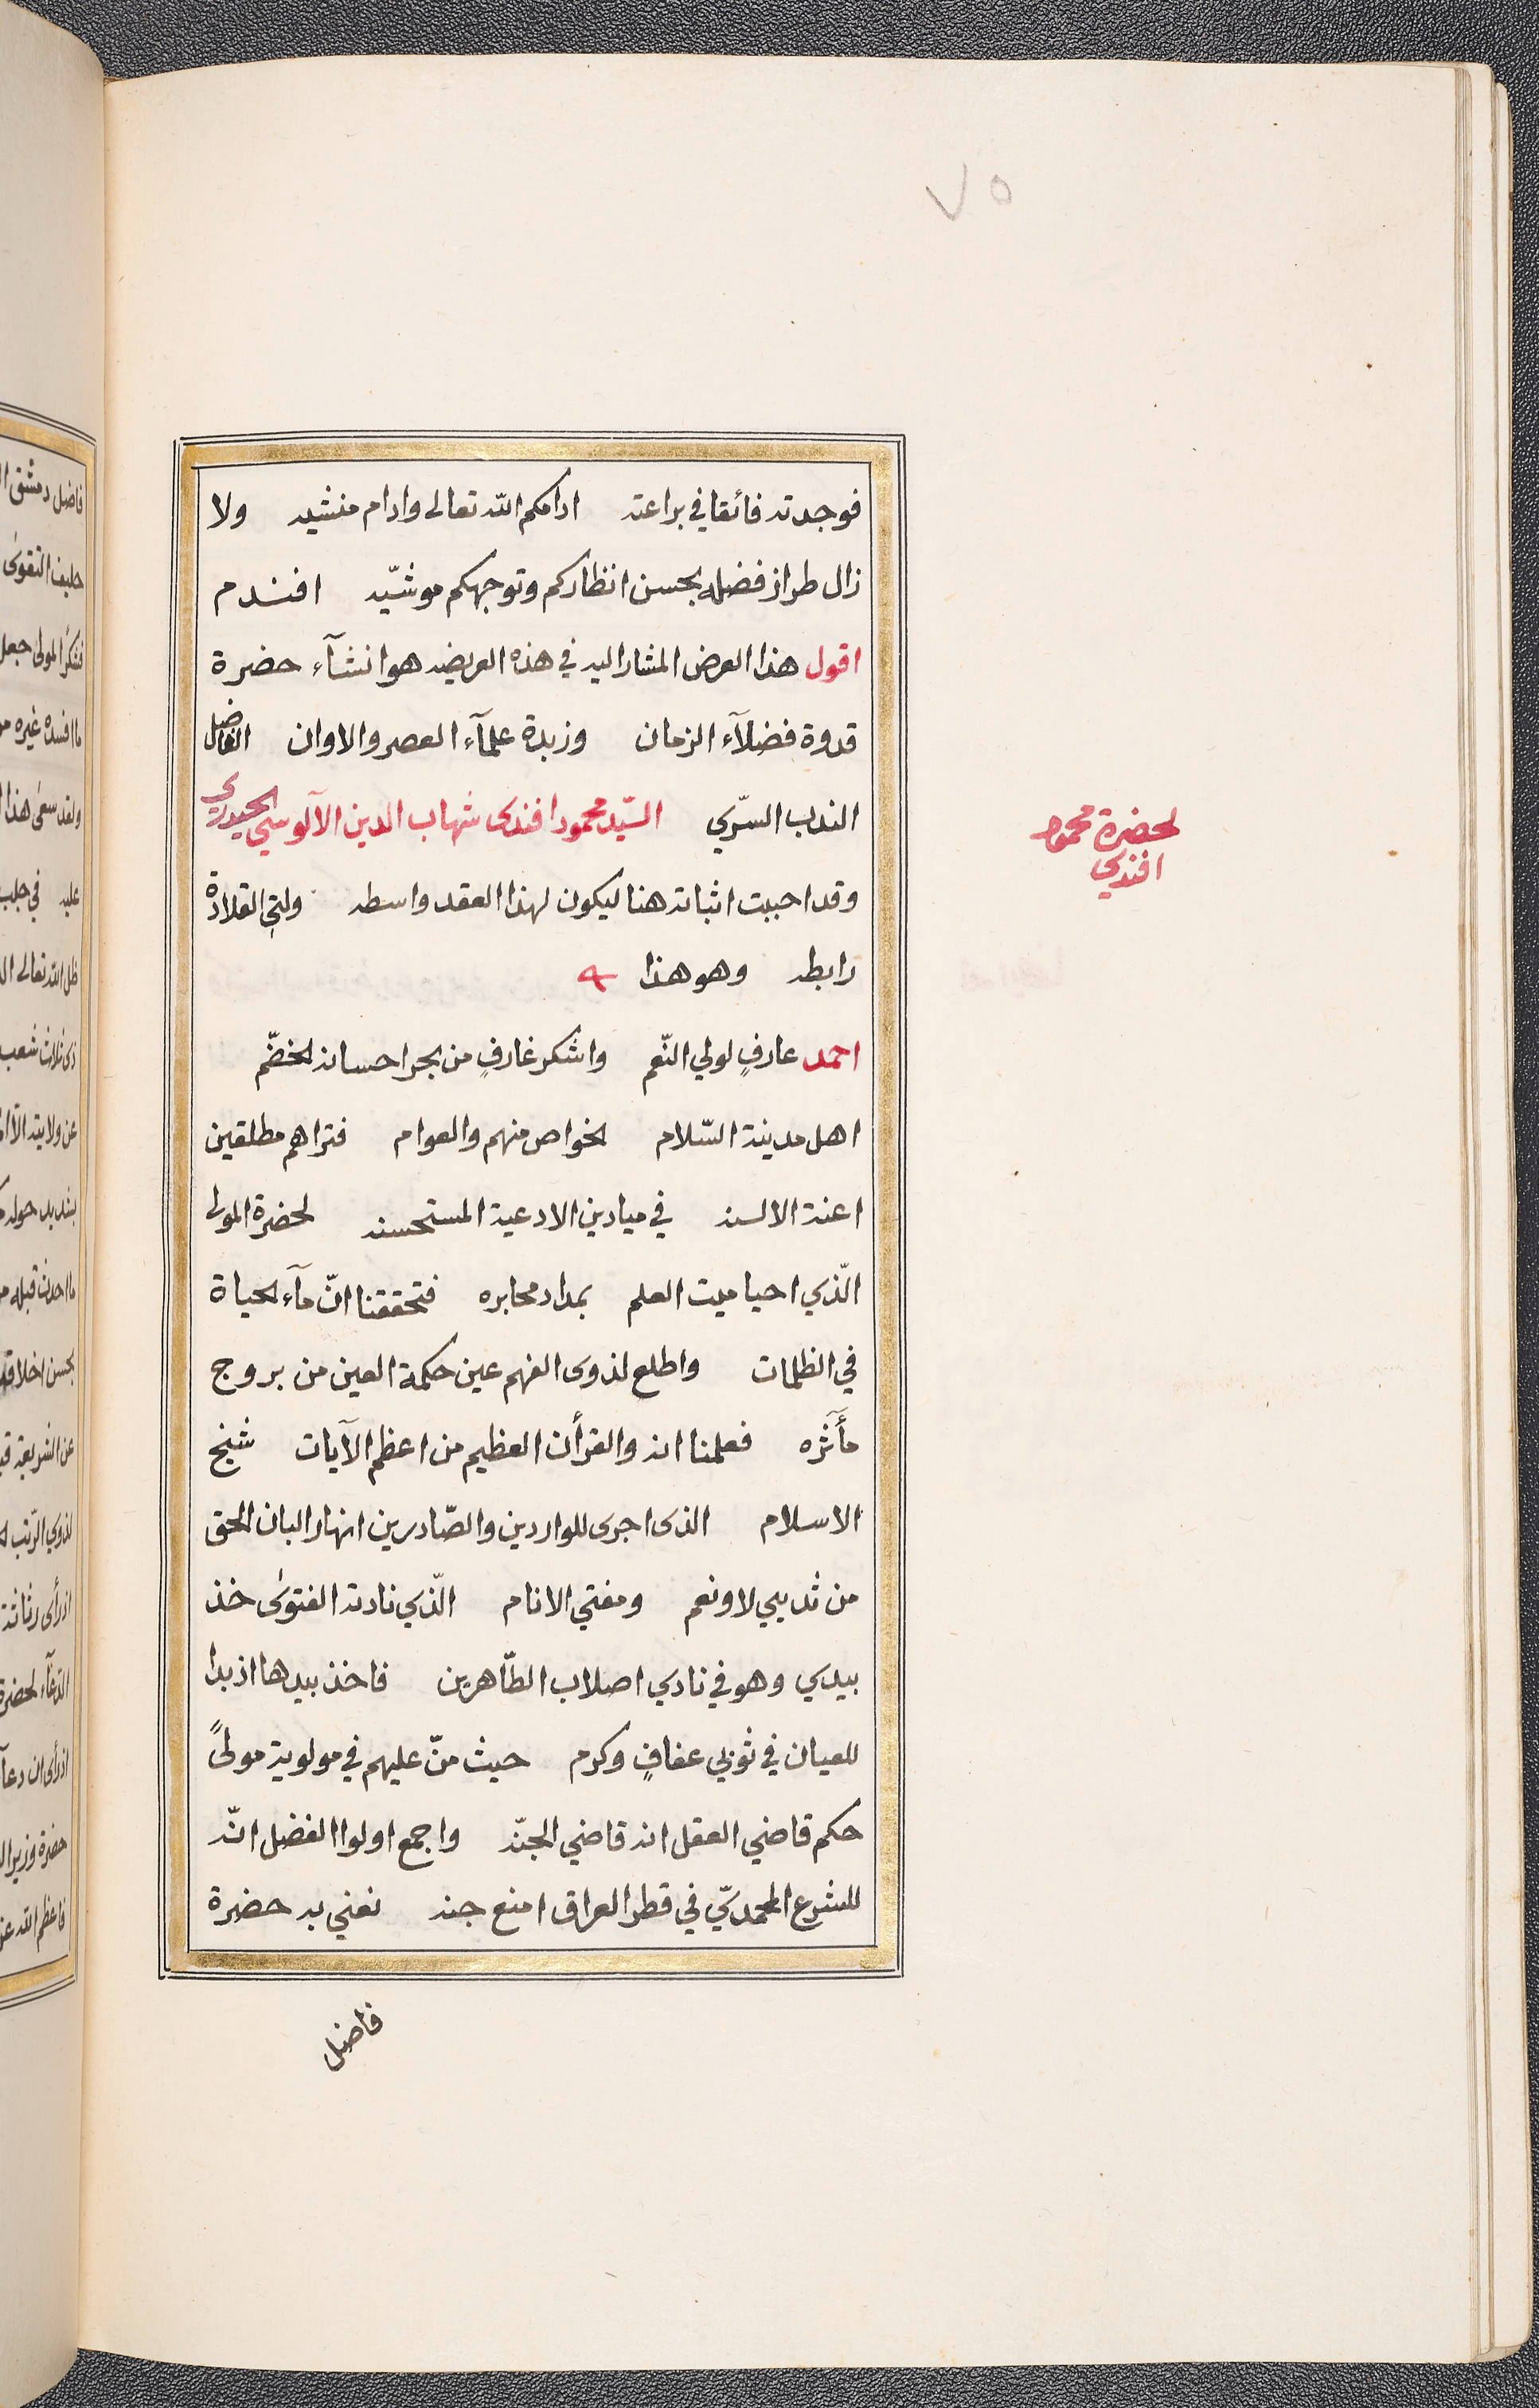 ٧٥
فوجدته فائقا في براعته ادامكم الله تعالى وادام منشيه ولا
زال طراز فضله بحسن انظاركم وتوجهكم موشّيه افندم
اقول هذا العرض المشار اليه في هذه العريضه هو انشآء حضرة
قدوة فضلآء الزمان وزبدة علمآء العصر والاوان الفاضل
الندب السّري السّيد محمود افندى شهاب الدين الآلوسي الحيدري
لحضرة محمود
افندي
وقد احببت اثباته هنا ليكون لهذا العقد واسطه ولتي القلادة
رابطه وهو هذا
احمد عارفٍ لولي النّعم واشكر غارفٍ من بحر احسانه الخضّم
اهل مدينة السّلام الخواص منهم والعوام فتراهم مطلقين
اعنة الالسنه في ميادين الادعية المستحسنه لحضرة المولى
الّذي احيا ميت العلم بمداد محابره فتحققنا انّ مآء الحياة
في الظلمات واطلع لذوى الفهم عين حكمة العين من بروج
مأثره فعلمنا انه والقرأن العظيم من اعظم الآيات شيخ
الاسلام الذى اجرى للواردين والصّادرين انهار البان الحق
من ثديي لا ونعم ومفتي الانام الّذي نادته الفتوى خذ
بيدي وهو في نادي اصلاب الطّاهرين فاخذ بيدها اذ بدا
للعيان في ثوبي عفافٍ وكرم حيث منّ عليهم في مولوية مولىً
حكم قاضي العقل انه قاضي الجنّه واجمع اولوا الفضل انّه
للشرع المحمديّ في قطر العراق امنع جنه نعني به حضرة
فاضل